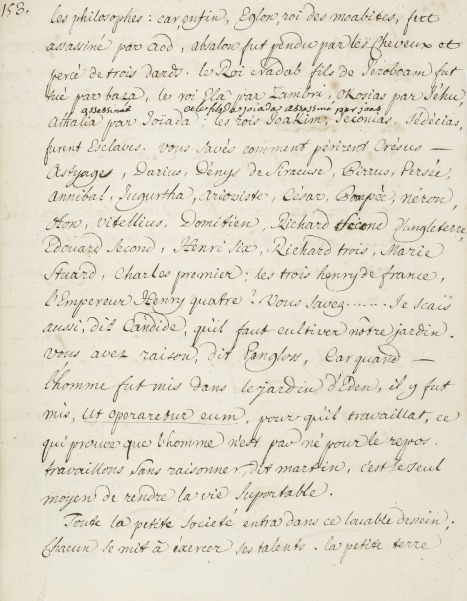 153.
les philosophes : car enfin, Eglon, roi des moabites, fut
assassiné par aod, absalon fut pendu par les Cheveux et
percé de trois dards. le Roi Nadab fils de Jeroboam fut
tué par baza, le roi Ela par Zambri, okosias par Jéhu,
Athalia par Joïada ; les rois Joakim, Jéconias, Sédécias,
furent Esclaves. vous savés comment périrent Crésus —
Astyages, Darius, Dénys de Siracuse, Pirrus, Persée,
annibal, Jugurtha, arioviste, César, Pompée, néron,
othon, vitellius, Domitien, Richard Second d'angleterre,
Edouard Second, Henri Six, Richard trois, Marie
Stuard, Charles premier ; les trois henry de france,
l'Empereur Henry quatre ? Vous savez ...... Je scais
aussi, dit Candide, qu'il faut cultiver nôtre jardin.
vous avez raison, dit Pangloss, Car quand —
l'homme fut mis dans le jardin d'Eden, il y fut
mis, ut operaretur eum, pour qu'il travaillat, ce
qui prouve que l'homme n'est pas né pour le repos.
travaillons sans raisonner, dit martin, c'est le seul
moyen de rendre la vie suportable.
Toute la petite société entra dans ce louable dessein,
Chacun se mit à éxercer ses talents. la petite terre